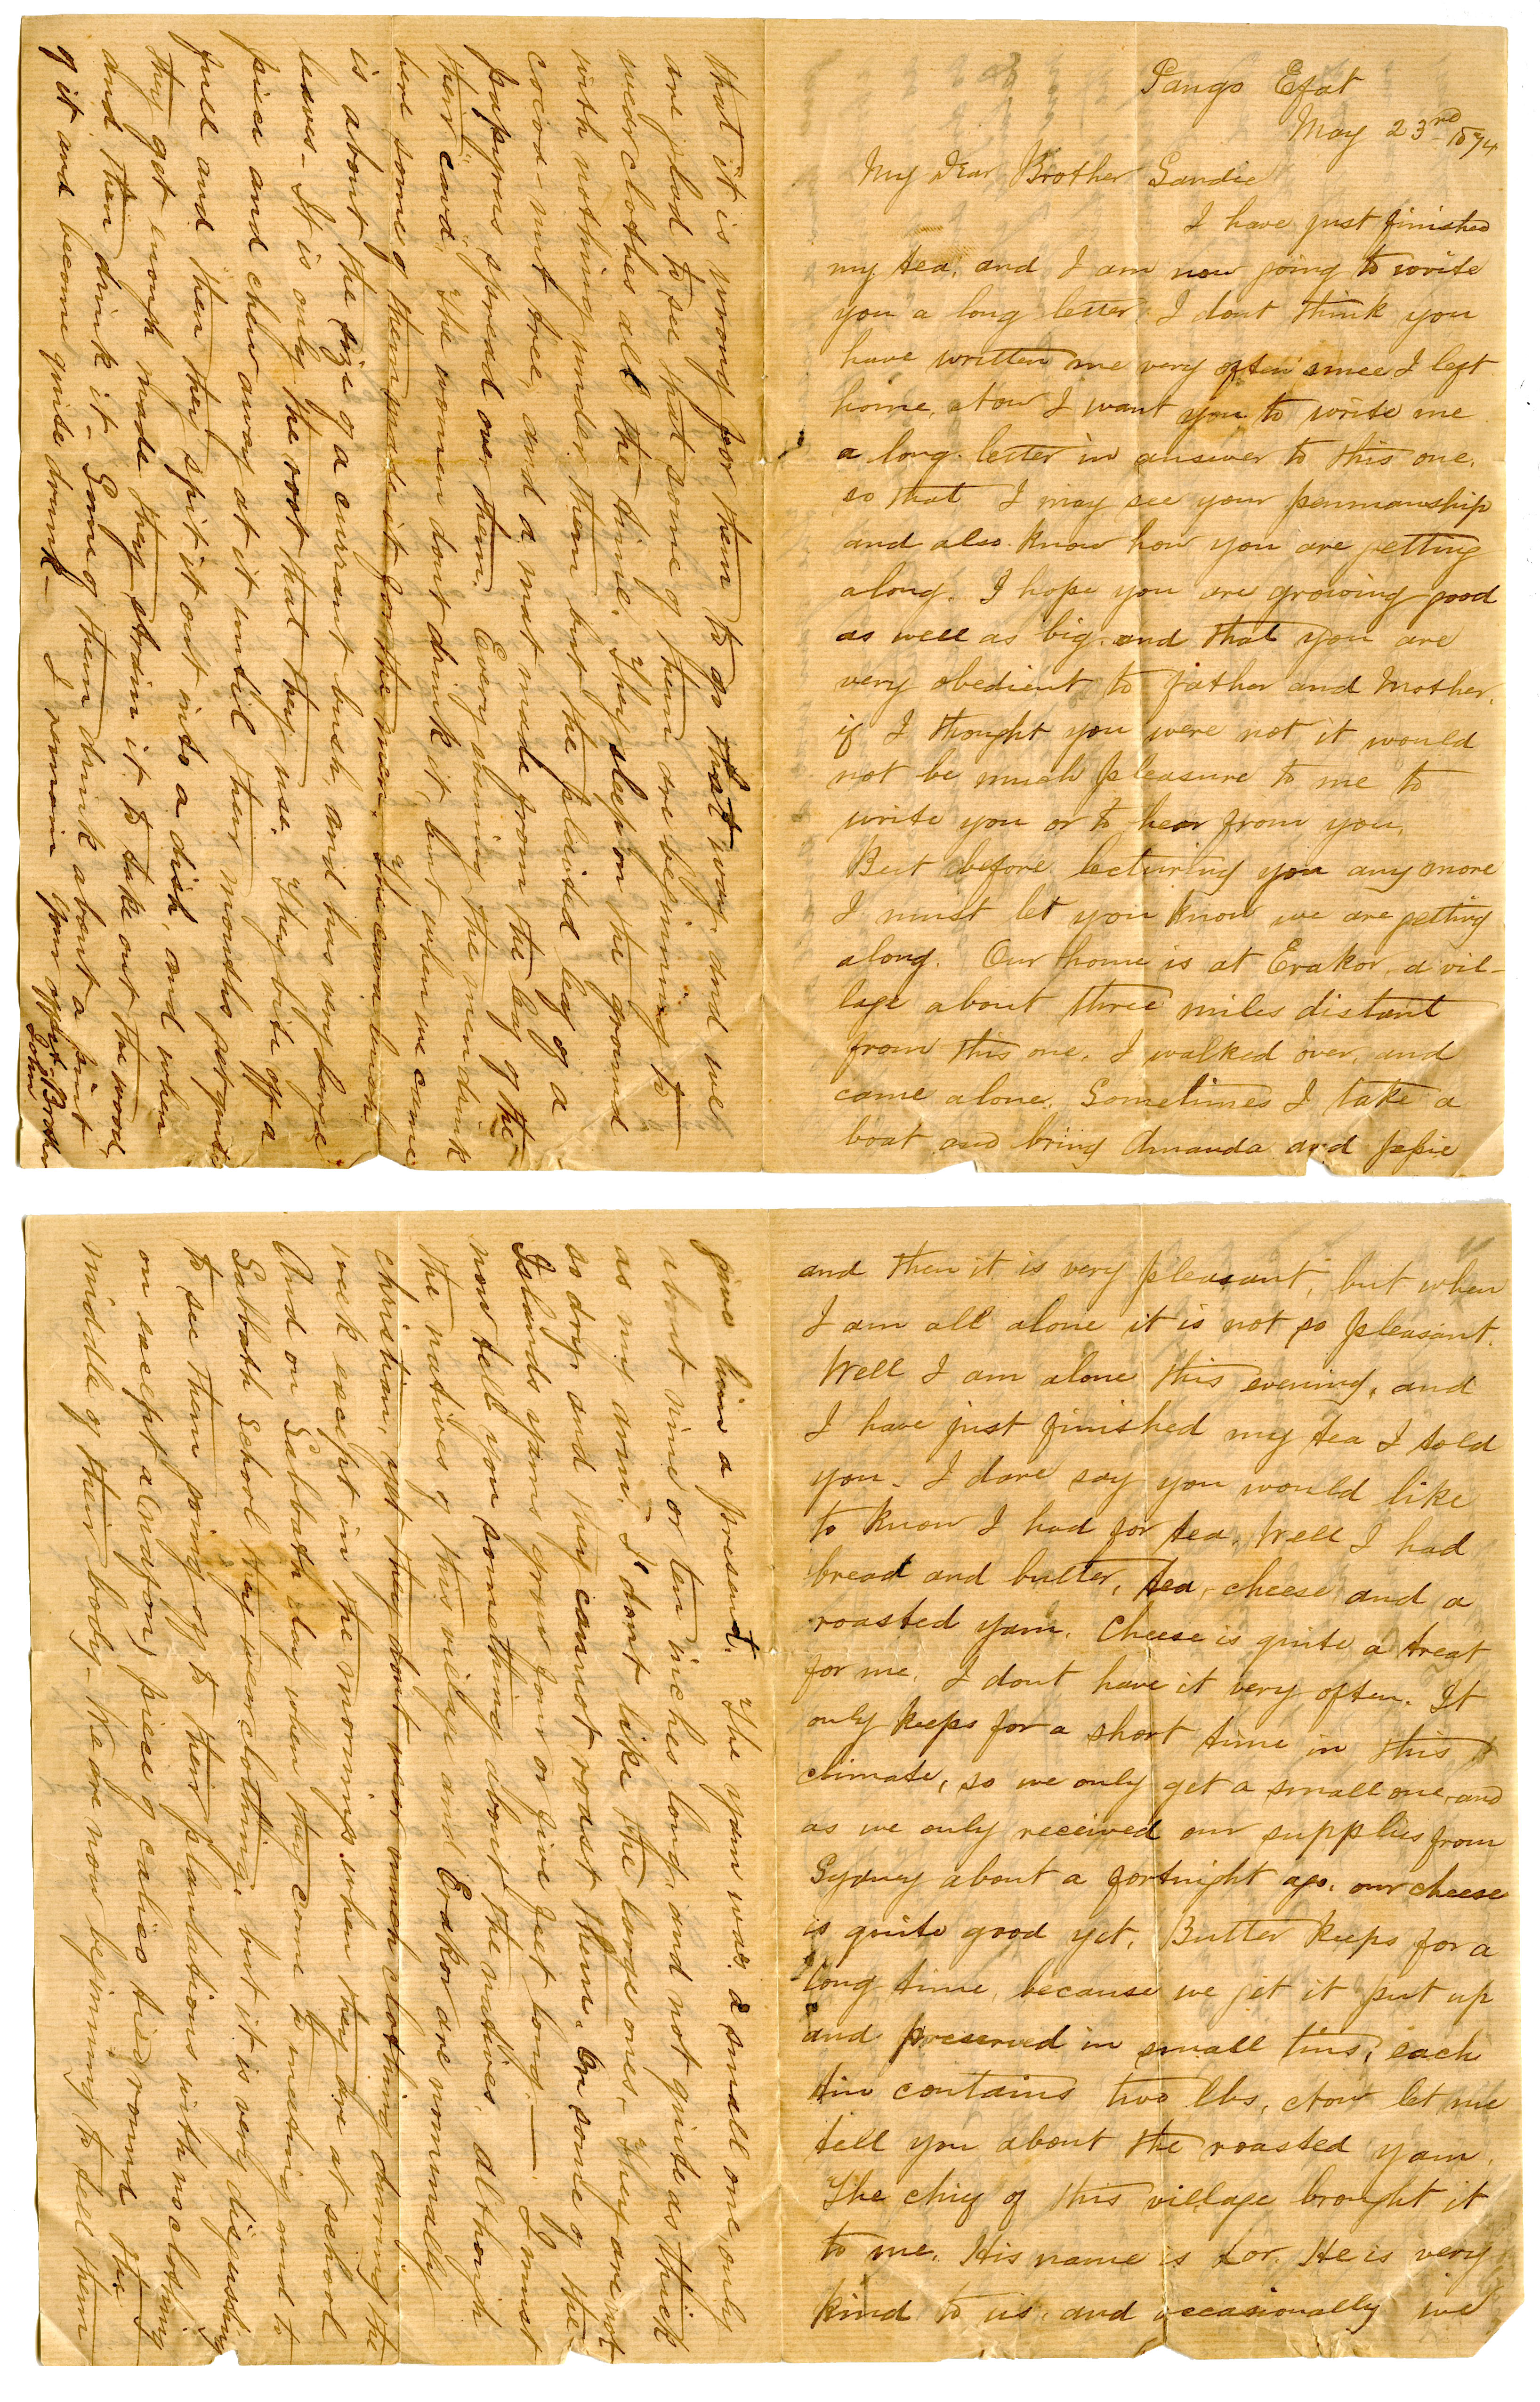 Pango Efat
May 23rd 1874
My Dear Brother Sandie
I have just finished
my tea, and I am now going to write
you a long letter. I dont think you
have written me very often since I left
home. Now I want you to write me
a long letter in answer to this one,
so that I may see your penmanship
and also know how you are getting
along. I hope you are growing good
as well as big and that you are
very obedient to father and Mother.
if I thought you were not it would
not be much pleasure to me to
write you or to hear from you.
But before lecturing you any more
I must let you know we are getting
along. Our home is at Erakor, a vil-
lage about three miles distant
from this one. I walked over, and
came alone. Sometimes I take a
boat and bring Amanda and
and then it is very pleasant, but when
I am all alone it is not so pleasant.
Well I am alone this evening, and
I have just finished my tea I told
you. I dare say you would like
to know I had for tea. Well I had
bread and butter, tea, cheese and a
roasted yam. Cheese is quite a treat
for me. I dont have it very often. It
only keeps for a short time in this
climate, so we only get a small one, and
as we only received our supplies from
Sydney about a fortnight ago, our cheese
is quite good yet. Butter keeps for a
long time, because we get it put up
and preserved in small tins, each
tin contains two lbs. Now let me
tell you about the roasted yam.
The chief of this village brought it
to me. His name is Lor. He is very
kind to us, and occasionally we
give him a present. The yam was a small one, only
about nine or ten inches long, and not quite as thick
as my arm. I dont like the large ones. They are not
so dry and they cannot roast them. On some of the
Islands yams grow four or five feet long. — I must
now tell you something about the natives, although
the natives of this village and Erakor are nominally
christian, yet they dont wear much clothing during the
week except in the mornings when they are at school
And on Sabbath day when they come to meeting and to
Sabbath School they wear clothing, but it is very disgusting
to see them going off to their plantations with no clothing
on except a (narrow) piece of calico tied round the
middle of their body. We are now beginning to tell them
that it is wrong for them to go that way, and we
are glad to see that some of them are beginning to
wear clothes all the time. They sleep on the ground
with nothing under them but the plaited leaf of a
cocoa-nut tree, and a mat made from the leaf of the
spread over them. Every evening the men drink
their "cava". The women dont drink it, but when we came
here some of them made it for the men. The cava bush
is about the size of a currant bush, and has very large
leaves - It is only the root that they use. They bite off a
piece and chew away at it until their mouths get quite
full and then they spit it out into a dish, and when
they get enough made they strain it to take out the wood,
and then drink it. Some of them drink about a pint
of it and become quite drunk - I remain Your affect. Brother
John